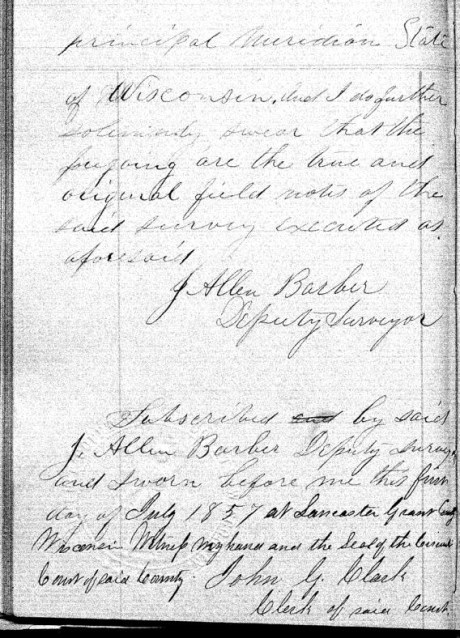 principal Meridian State
of Wisconsin. And I do further
solemnly swear that the
forgoing are the true and
original field notes of the
said survey executed as
aforesaid
J Allen Barber
Deputy Surveyor
Subscribed and by said
J. Allen Barber Deputy Survey
and sworn before me this first
day of July 1857 at Lancaster Grant County
Wisconsin Witness my hand and the Seal of the Circuit
Court of said County. John G. Clark
Clerk of said Court